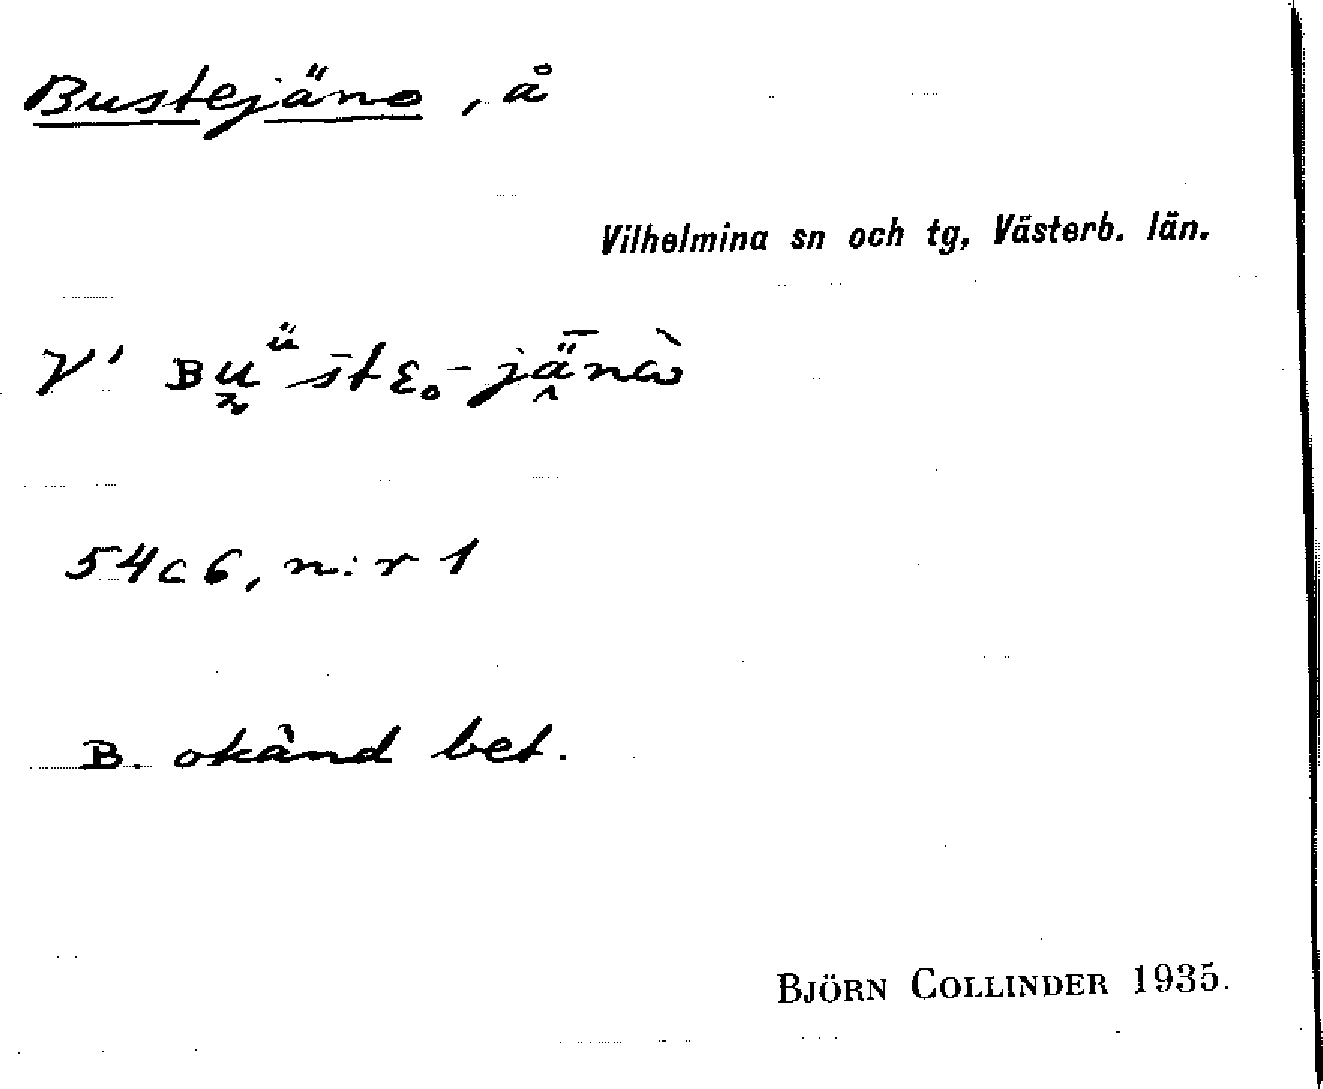 Bustejäno, å
Vilhelmina sn och tg, Västerb. län.
54c6, n:r 1
B. okänd bet.
BJÖRN COLLINDER 1935.